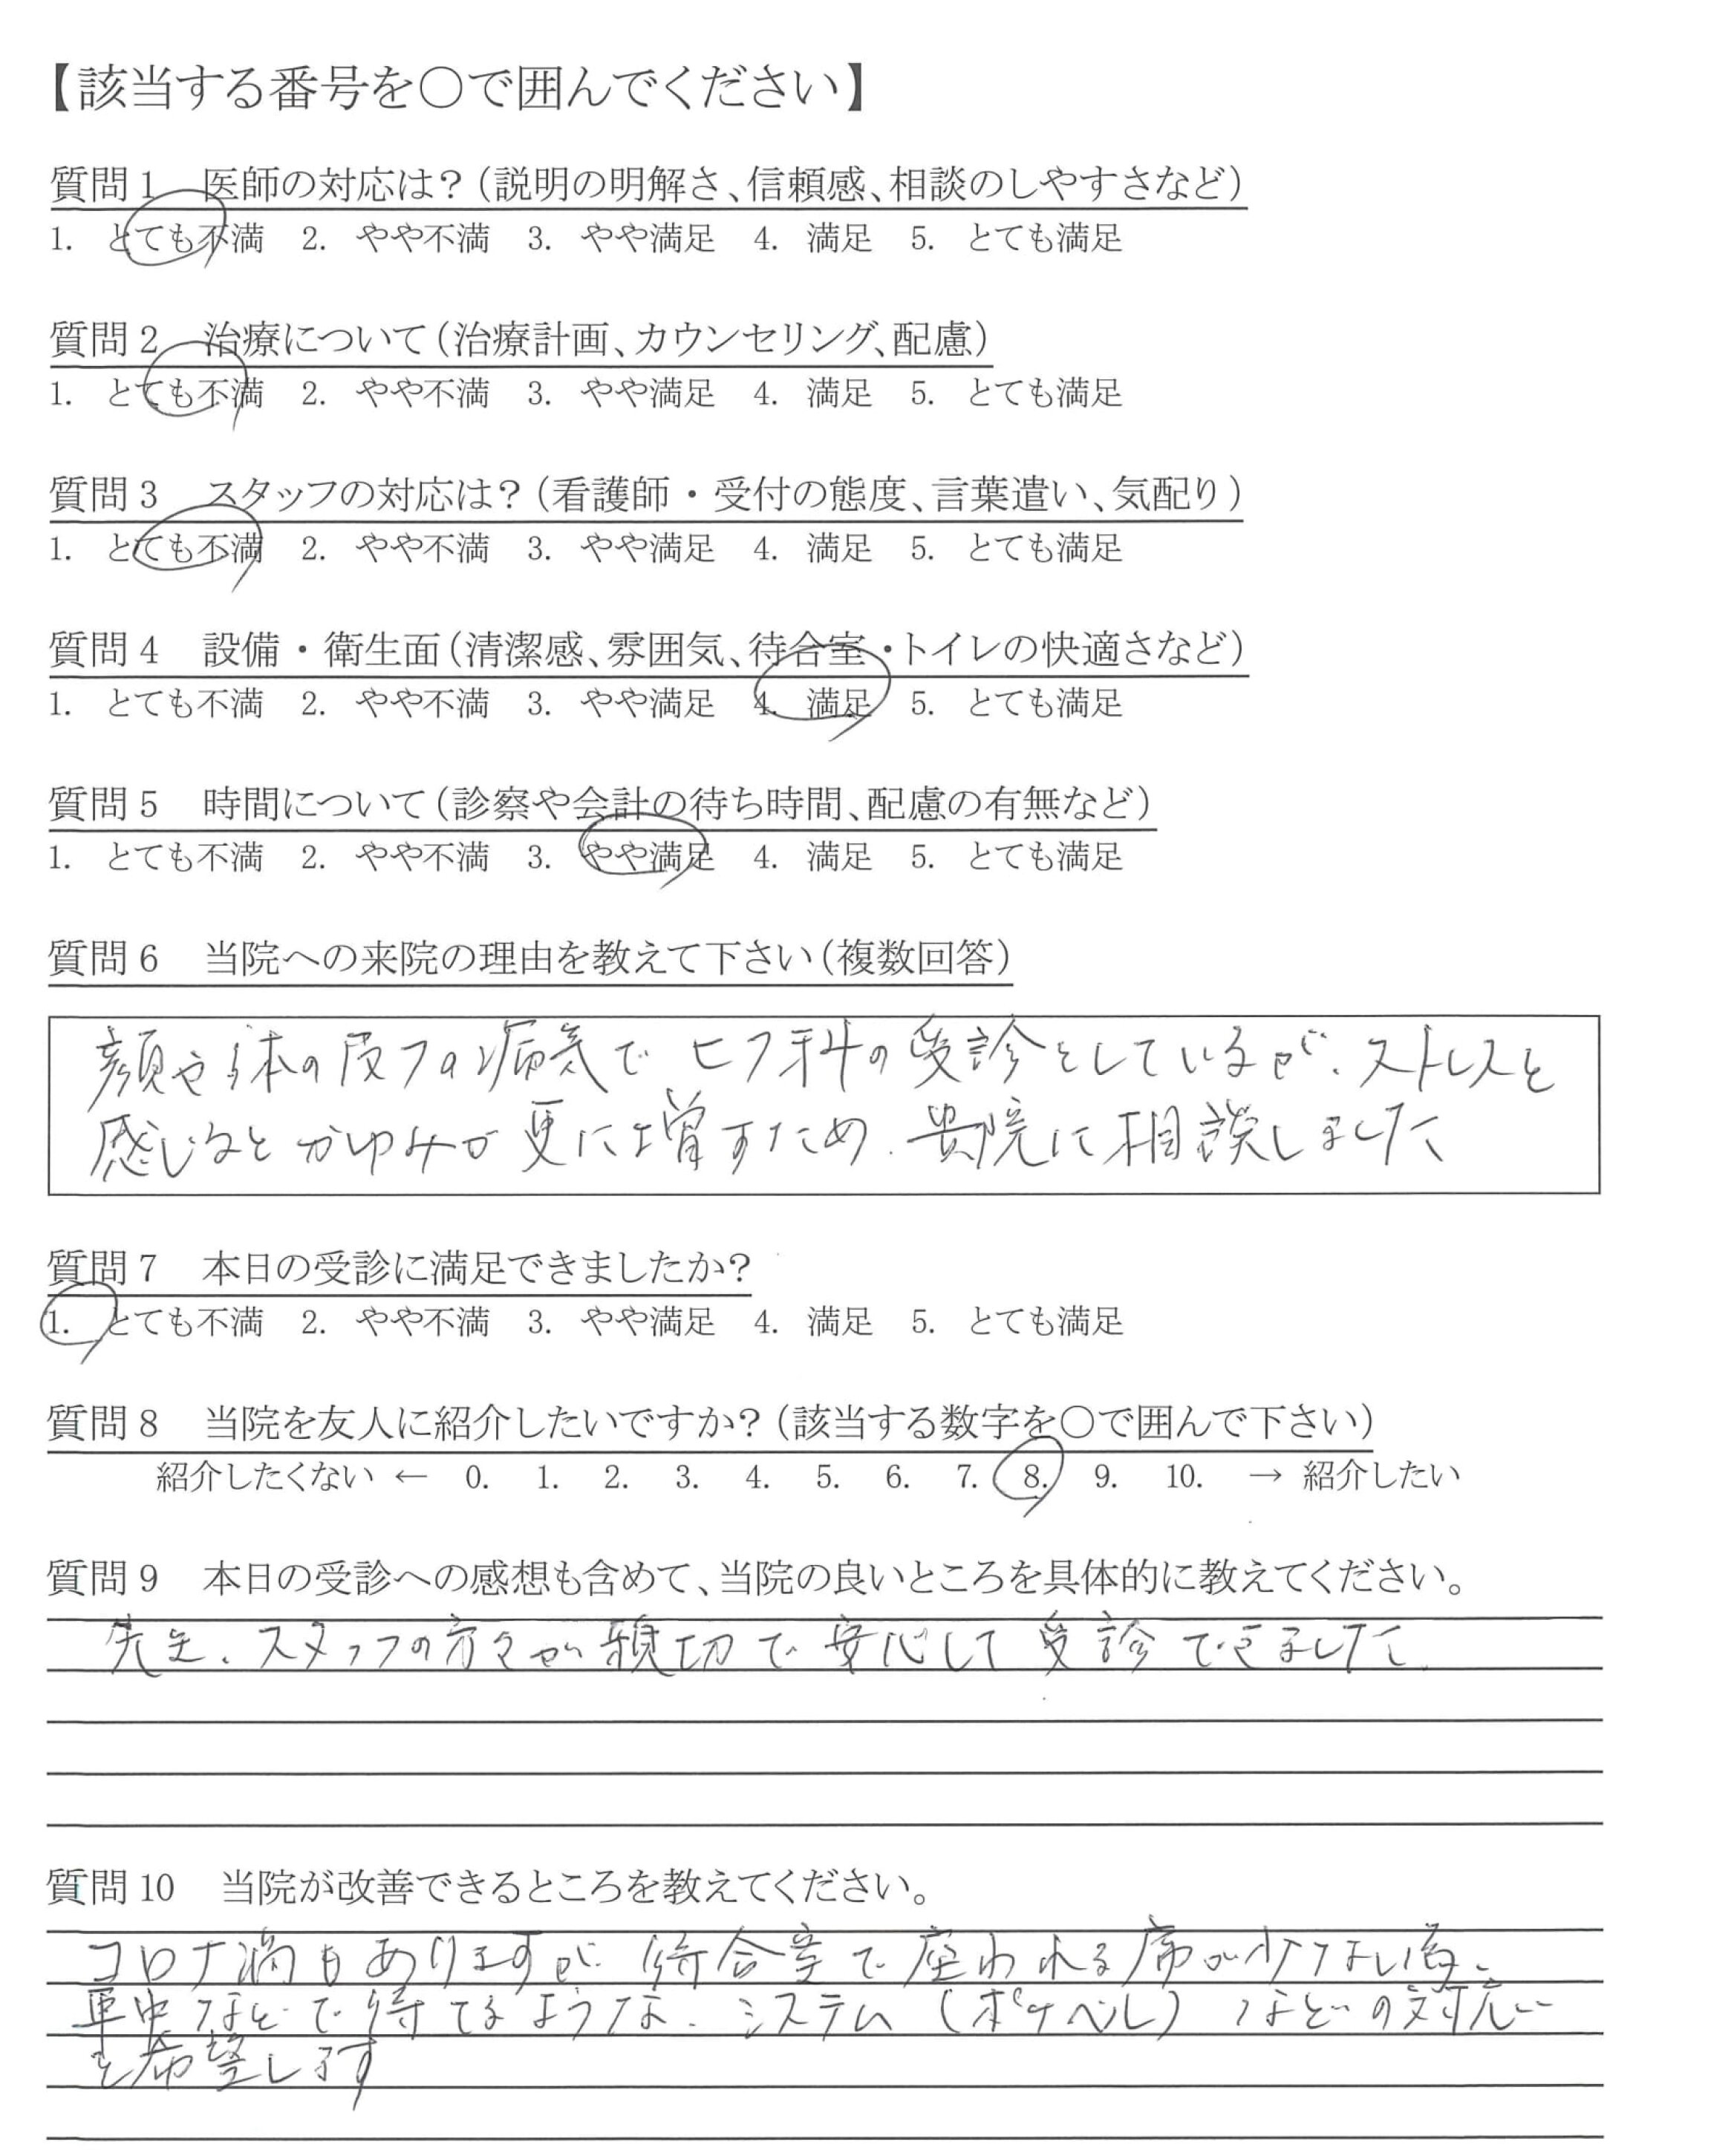 【該当する番号を○で囲んでください】
質問1 医師の対応は?(説明の明解さ、信頼感、相談のしやすさなど)
1. とても不満 2. やや不満 3. やや満足 4. 満足 5. とても満足
質問2 治療について(治療計画、カウンセリング、配慮)
1. とても不満 2. やや不満 3. やや満足 4. 満足 5. とても満足
質問3 スタッフの対応は?(看護師・受付の態度、言葉遣い、気配り)
1. とても不満 2. やや不満 3. やや満足 4. 満足 5. とても満足
質問4 設備・衛生面(清潔感、雰囲気、待合室・トイレの快適さなど)
1. とても不満 2. やや不満 3. やや満足 4. 満足 5. とても満足
質問5 時間について(診察や会計の待ち時間、配慮の有無など)
1. とても不満 2. やや不満 3. やや満足 4. 満足 5. とても満足
質問6 当院への来院の理由を教えて下さい(複数回答)
顔や体の皮フの病気でヒフ科の受診をしているが、ストレスを
感じるとかゆみが更に増すため、貴院に相談しました
質問7 本日の受診に満足できましたか?
1. とても不満 2. やや不満 3. やや満足 4. 満足 5. とても満足
質問8 当院を友人に紹介したいですか?(該当する数字を○で囲んで下さい)
紹介したくない ← 0. 1. 2. 3. 4. 5. 6. 7. 8. 9. 10. → 紹介したい
質問9 本日の受診への感想も含めて、当院の良いところを具体的に教えてください。
先生、スタッフの方々が親切で安心して受診できました。
質問10 当院が改善できるところを教えてください。
コロナ渦もありますが、待合室で座われる席が少ない為、
車中などで待てるような、システム(ポケベル)などの対応
を希望します